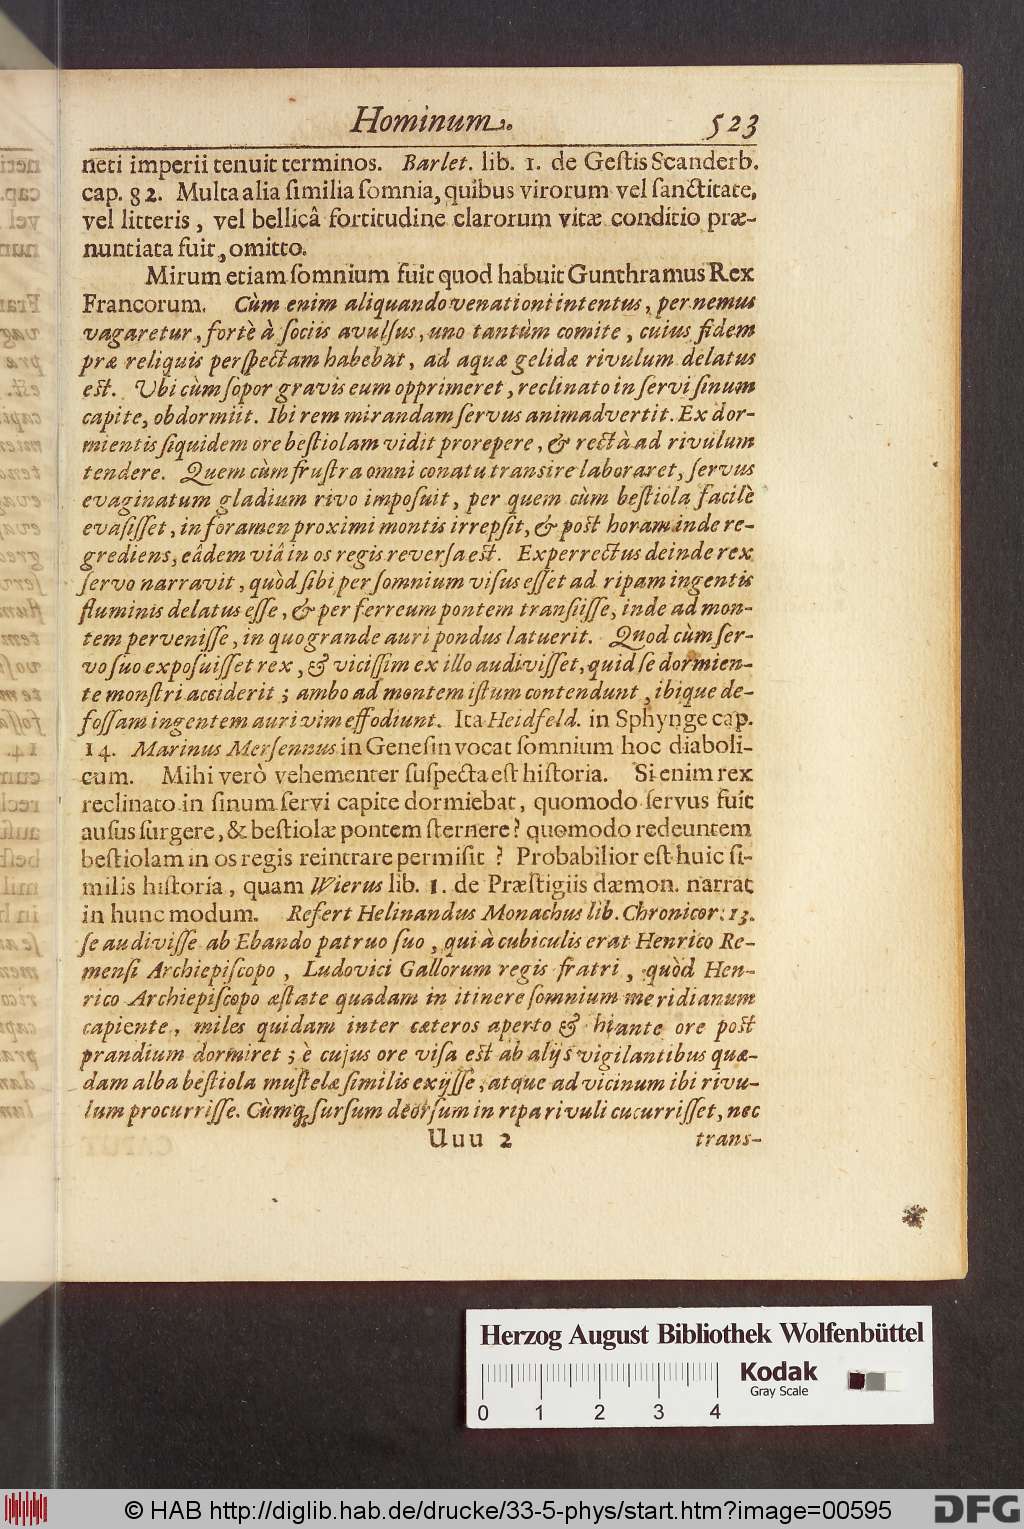 Hominum. 523
neti imperii tenuit terminos. Barlet. lib. 1. de Geſtis Scanderb.
cap. 82. Multa alia ſimilia ſomnia, quibus virorum vel ſanctitate,
vel litteris, vel bellicâ fortitudine clarorum vitæ conditio præ-
nuntiata fuit, omitto.
Mirum etiam ſomnium fuit quod habuit Gunthramus Rex
Francorum. Cùm enim aliquando venationi intentus, per nemus
vagaretur, fortè à ſociis avulſus, uno tantùm comite, cuius fidem
præ reliquis perſpectam habebat, ad aquæ gelidæ rivulum delatus
eſt. Ubi cùm ſopor gravis eum opprimeret, reclinato in ſervi ſinum
capite, obdormiit. Ibi rem mirandam ſervus animadvertit. Ex dor-
mientis ſiquidem ore beſtiolam vidit prorepere, & rectà ad rivulum
tendere. Quem cùm fruſtra omni conatu transire laboraret, ſervus
evaginatum gladium rivo impoſuit, per quem cùm beſtiola facilè
evaſiſſet, in foramen proximi montis irrepſit, & poſt horam inde re-
grediens, eâdem viâ in os regis reverſa eſt. Experrectus deinde rex
ſervo narravit, quòd ſibi per ſomnium viſus eſſet ad ripam ingentis
fluminis delatus eſſe, & per ferreum pontem tranſiiſſe, inde ad mon-
tem perveniſſe, in quo grande auri pondus latuerit. Quod cùm ſer-
vo ſuo expoſuiſſet rex, & viciſſim ex illo audiviſſet, quid ſe dormien-
te monſtri acciderit; ambo ad montem iſtum contendunt, ibique de-
foſſam ingentem auri vim effodiunt. Ita Heidfeld. in Sphynge cap.
14. Marinus Merſennus in Geneſin vocat ſomnium hoc diaboli-
cum. Mihi verò vehementer ſuſpecta eſt hiſtoria. Si enim rex
reclinato in ſinum ſervi capite dormiebat, quomodo ſervus fuit
auſus ſurgere, & beſtiolæ pontem ſternere? quomodo redeuntem
beſtiolam in os regis reintrare permiſit? Probabilior eſt huic ſi-
milis hiſtoria, quam Wierus lib. 1. de Præſtigiis dæmon. narrat
in hunc modum. Refert Helinandus Monachus lib. Chronicor. 13.
ſe audiviſſe ab Ebando patruo ſuo, qui à cubiculis erat Henrico Re-
menſi Archiepiſcopo, Ludovici Gallorum regis fratri, quòd Hen-
rico Archiepiſcopo æſtate quadam in itinere ſomnium meridianum
capiente, miles quidam inter cæteros aperto & hiante ore poſt
prandium dormiret; è cujus ore viſa eſt ab alijs vigilantibus quæ-
dam alba beſtiola muſtelæ ſimilis exijſſe, atque ad vicinum ibi rivu-
lum procurriſſe. Cùmq́; ſurſum deorſum in ripa rivuli cucurriſſet, nec
Uuu 2 trans-
Herzog August Bibliothek Wolfenbüttel
Kodak
Gray Scale
0 1 2 3 4
© HAB http://diglib.hab.de/drucke/33-5-phys/start.htm?image=00595
DFG